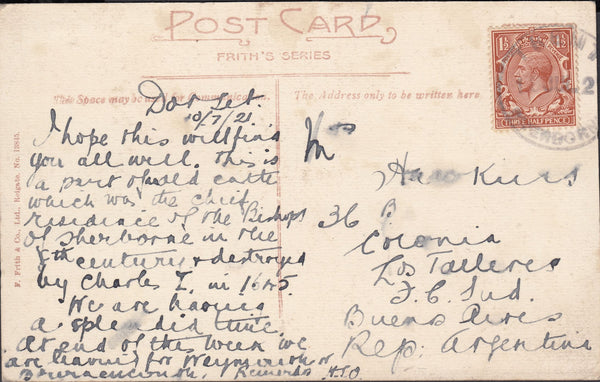 POST CARD
FRITH'S SERIES
This Space may be used for Communication.
The Address only to be written here
F. Frith & Co., Ltd., Reigate. No.
THREE HALFPENCE
1½ 1½
Dorset.
10/7/21
I hope this will find
you all well. This is
a part of old castle
which was the chief
residence of the Bishops
of Sherborne in the
8th century & destroyed
by Charles I. in 1645
We are having
a splendid time.
At end of the week we
are leaving for Weymouth or
Bournemouth. / Remords T.T.O.
Mrs
Hawkins
36 B
Colonia
Los Talleres
F. C. Sud.
Buenos Aires
Rep. Argentina